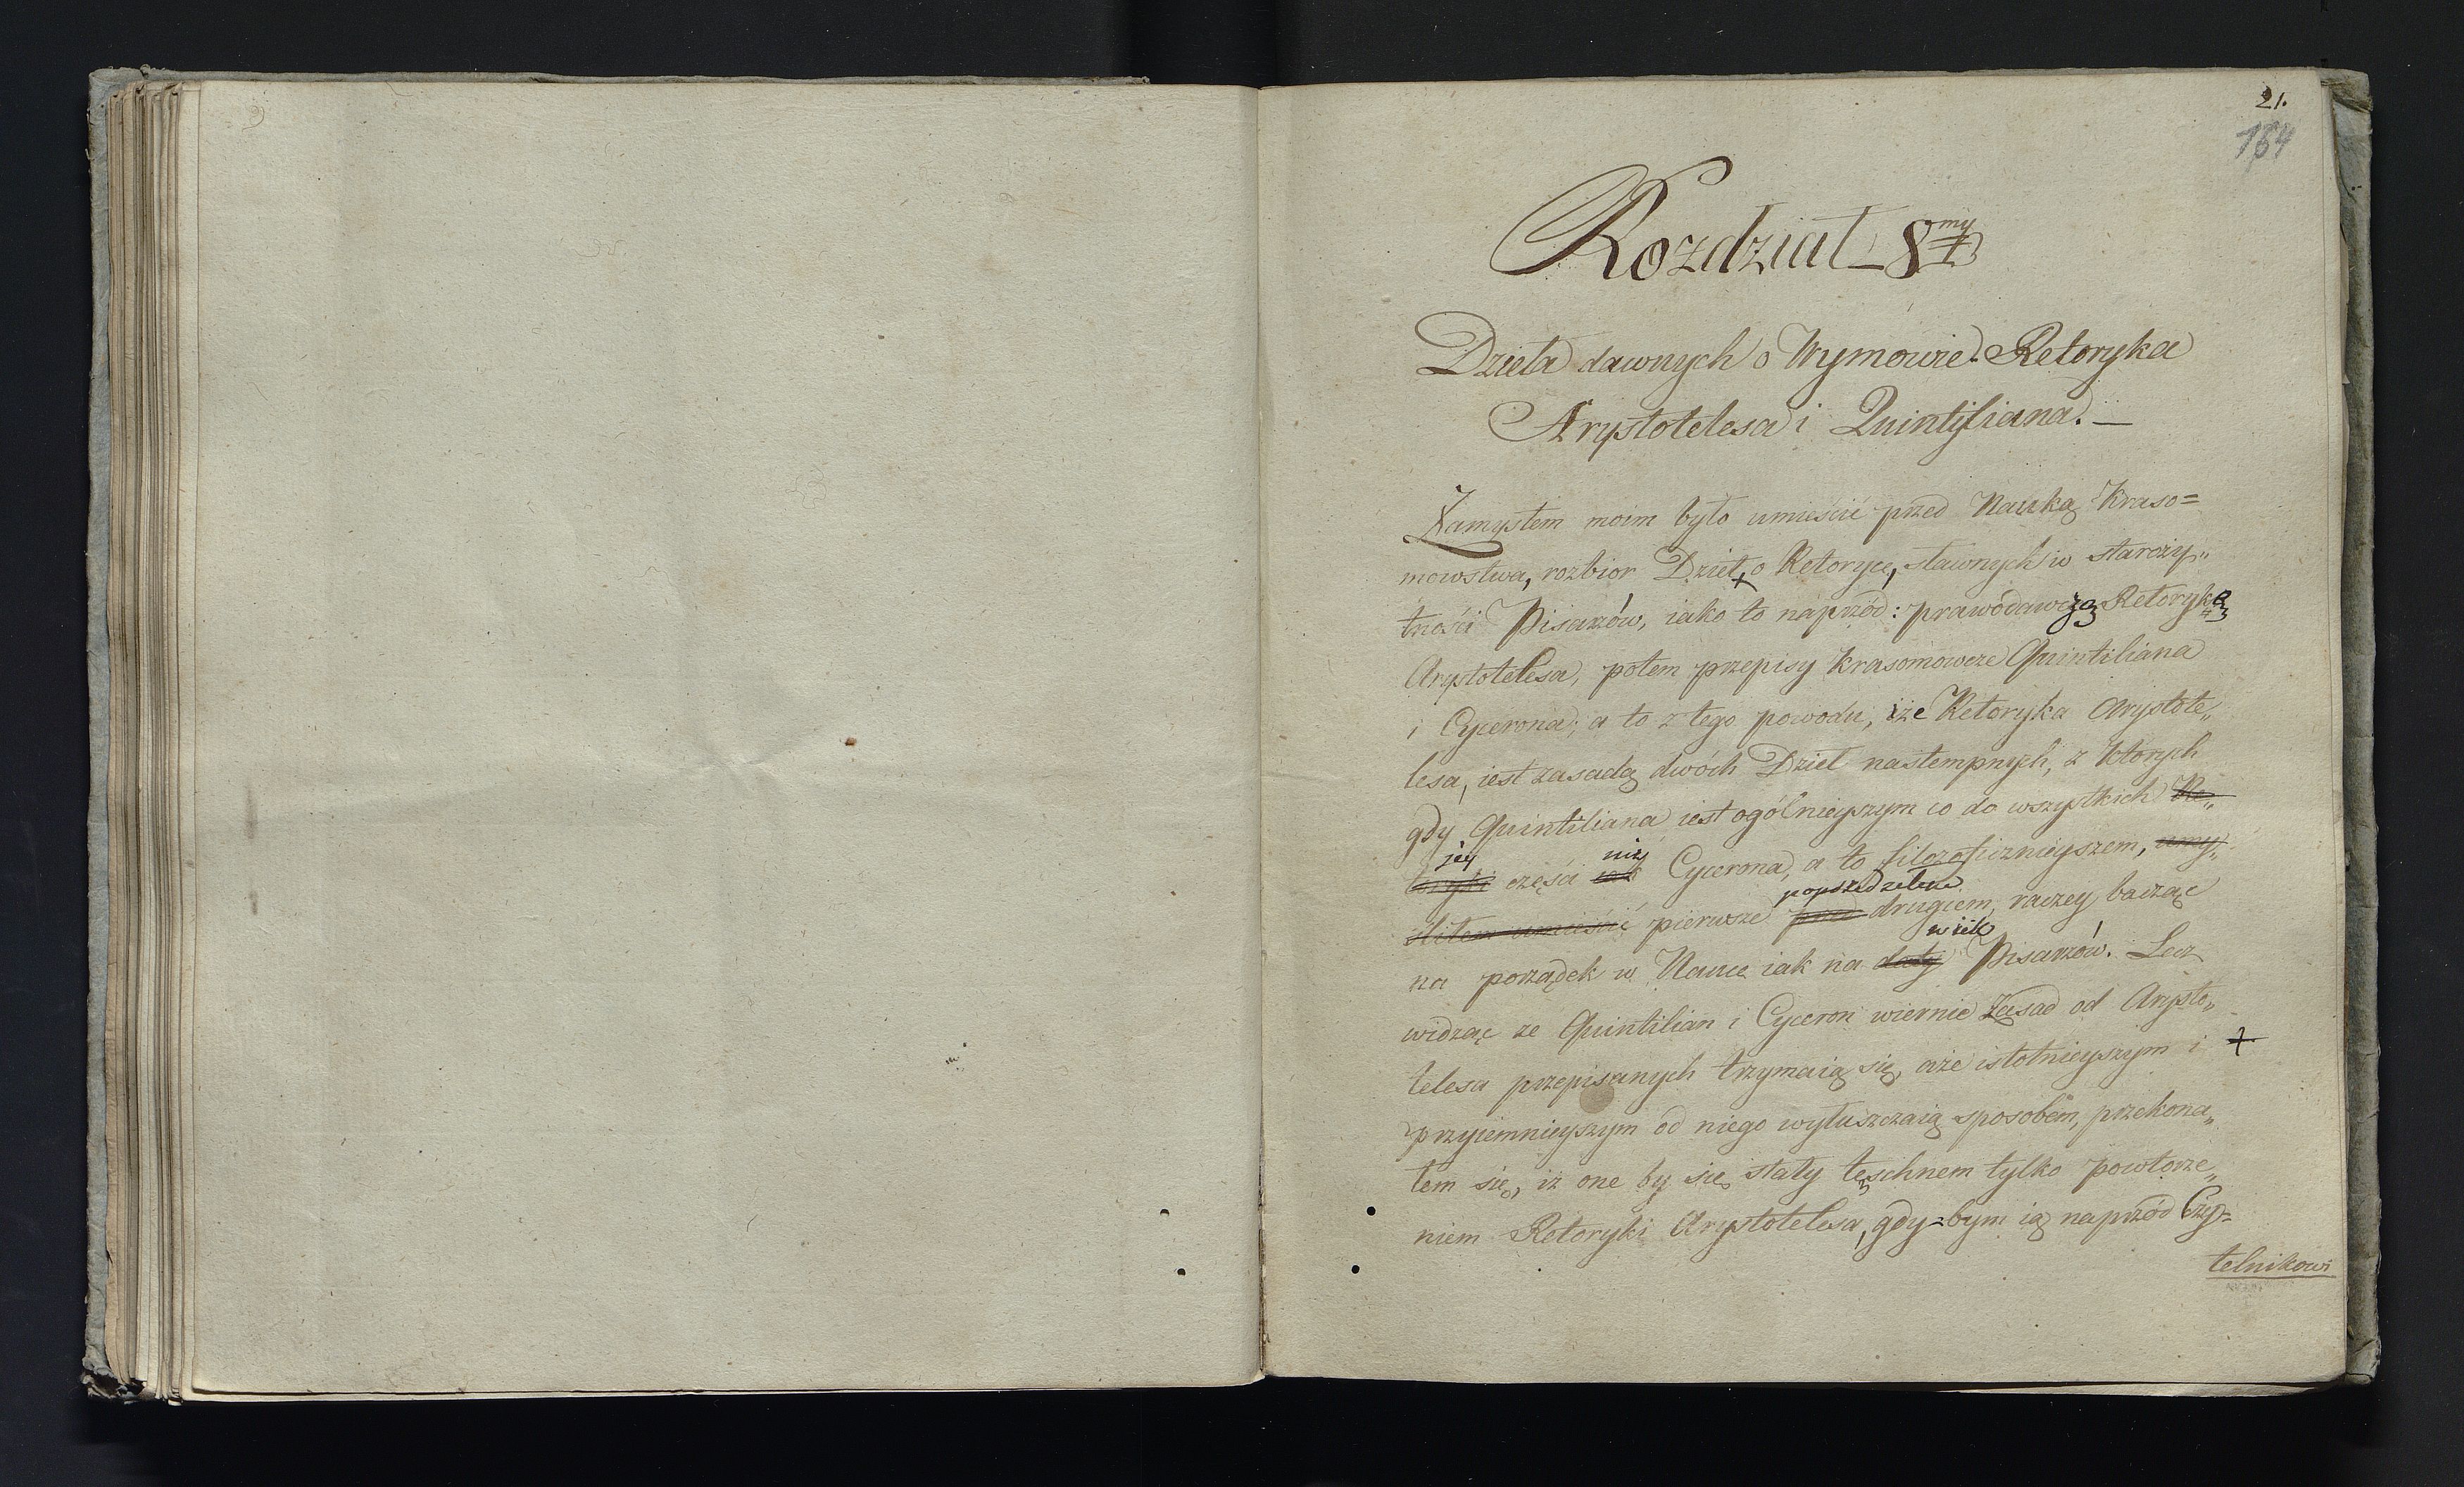 21.
164
Rozdział 8my
Dzieła dawnych o Wymowie. Retoryka
Arystotelesa i Quintyliana. —
Zamysłem moim było umieścić przed Nauką Kraso=
mowstwa, rozbior Dzieł + o Retoryce, sławnych w starożyt„
tności Pisarzów, iako to naprzód: prawódawczą Retorykę
Arystotelesa, potem przepisy krasomowcze Quintiliana
i Cycerona; a to z tego powodu, iże Retoryka Arystote„
lesa, iest zasadą dwóch Dzieł nastempnych, z ktorych
gdy Quintiliana iest ogólnieyszym co do wszystkich Re„
jey niż
toryki części iak Cycerona, a to filozoficznieyszem, umy„
poprzedzebne
śliłem umieścić pierwsze przed drugiem, raczey bacząc
wiek
na porządek w Nauce iak na daty Pisarzów. Lecz
widząc ze Quintilian i Cyceron wiernie Zasad od Arysto„
telesa przepisanych trzymaią się, aże istotnieyszym i +
przyiemnieyszym od niego wyłuszczaią sposobem, przekona„
łem się, iż one by się stały tęschnem tylko powtorze„
niem Retoryki Arystotelesa, gdy=bym ią naprzód Czy=
telnikowi